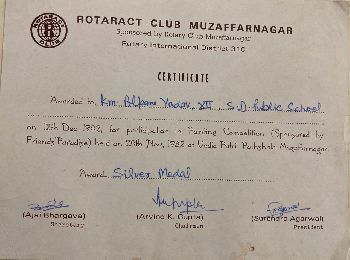 ROTARACT CLUB MUZAFFARNAGAR
Sponsored by Rotary Club Muzaffarnagar
Rotary International District 310
ROTARACT
CLUB
CERTIFICATE
Awarded to Km. Alpana Yadav XII S.D. Public School
on 12th Dec 1982, for participation in Painting Competition (Sponsored by
Friends' Paradise) held on 28th Nov, 1982 at Vedic Putri Pathshala Muzaffarnagar
Award Silver Medal
(Ajai Bhargava)
Secretary
(Arvind K. Gupta)
Chairman
(Surendra Agarwal)
President